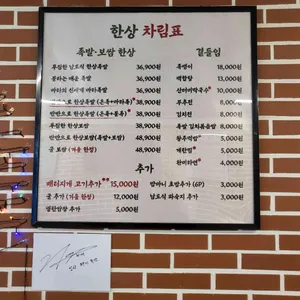 한상 차림표
족발·보쌈 한상
푸짐한 남도식 한상족발 36,900원
불타는 매운 족발 36,900원
마라의 신세계 마라족발 36,900원
반반으로 한상족발 (온족+마라족) 38,900원
반반으로 한상족발 (온족+불족) 38,900원
푸짐한 한상보쌈 38,900원
반반으로 한상보쌈(족발+보쌈) 48,900원
굴 보쌈 (겨울 한정) 48,900원
곁들임
쭉쟁이 18,000원
백합탕 13,000원
산더미막국수 10,000원
부추전 8,000원
김치전 8,000원
족발 김치볶음밥 8,000원
왕주먹밥 5,000원
계란찜 5,000원
5,000원
추가
배터지게 고기추가 15,000원
굴 추가 (겨울 한정) 12,000원
쌈한상 추가 5,000원
호빵추가 (6P) 3,000원
남도식 추가 3,000원